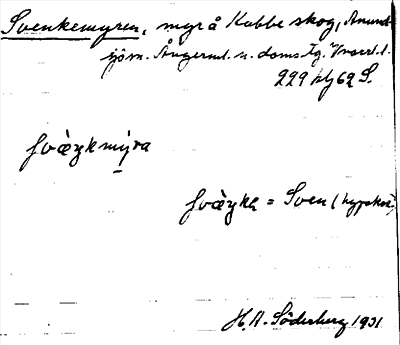 Svenkemyren, myr å Kubbe skog, Anund-
sjö sn. Ångerml. n. doms.
229 h/j 69 S.
svæ̀ŋkmýra
svæ̀ŋkɐ = Sven (hypokor.)
H. A. Söderberg 1931